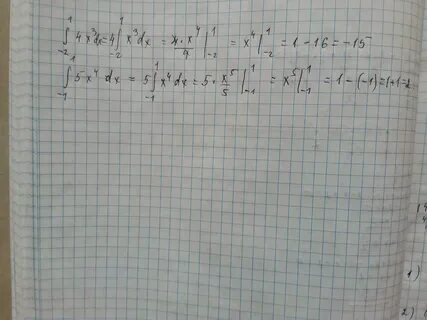 ∫₋₂¹ 4x³dx = 4∫₋₂¹ x³dx = 4·x⁴/4 |₋₂¹ = x⁴|₋₂¹ = 1 - 16 = -15
∫₋₁¹ 5x⁴dx = 5∫₋₁¹ x⁴dx = 5·x⁵/5 |₋₁¹ = x⁵|₋₁¹ = 1 - (-1) = 1+1=2
1)
2)